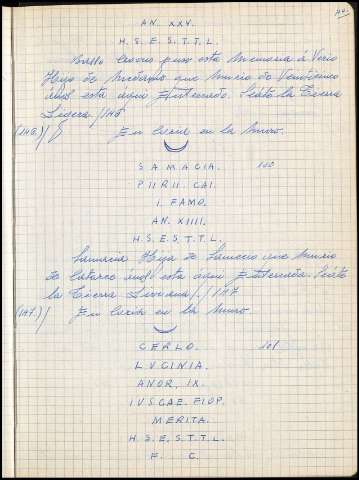 AN. XXV.
H. S. E. S. T. T. L.
puso esta Memoria á Verio
Hijo de que murio de Veinticinco
áños está aqui Enterrado. Seáte la Tierra
Ligera / 146
(146.) / En Coria en la Muro.
SAMACIA. 100
PIIRII. CAI.
I. FAMO.
AN. XIIII.
H. S. E. S. T. T. L.
Samacia Hija de que murio
de Catorce áños está aqui Enterrada. Seáte
la Tierra Liviana /. / 147
(147.) / En Coria en la Muro.
CERLO. 101
LVCINIA.
ANOR, IX.
IVSCAE. FIOP.
MERITA.
H. S. E, S. T. T. L.
F. C.